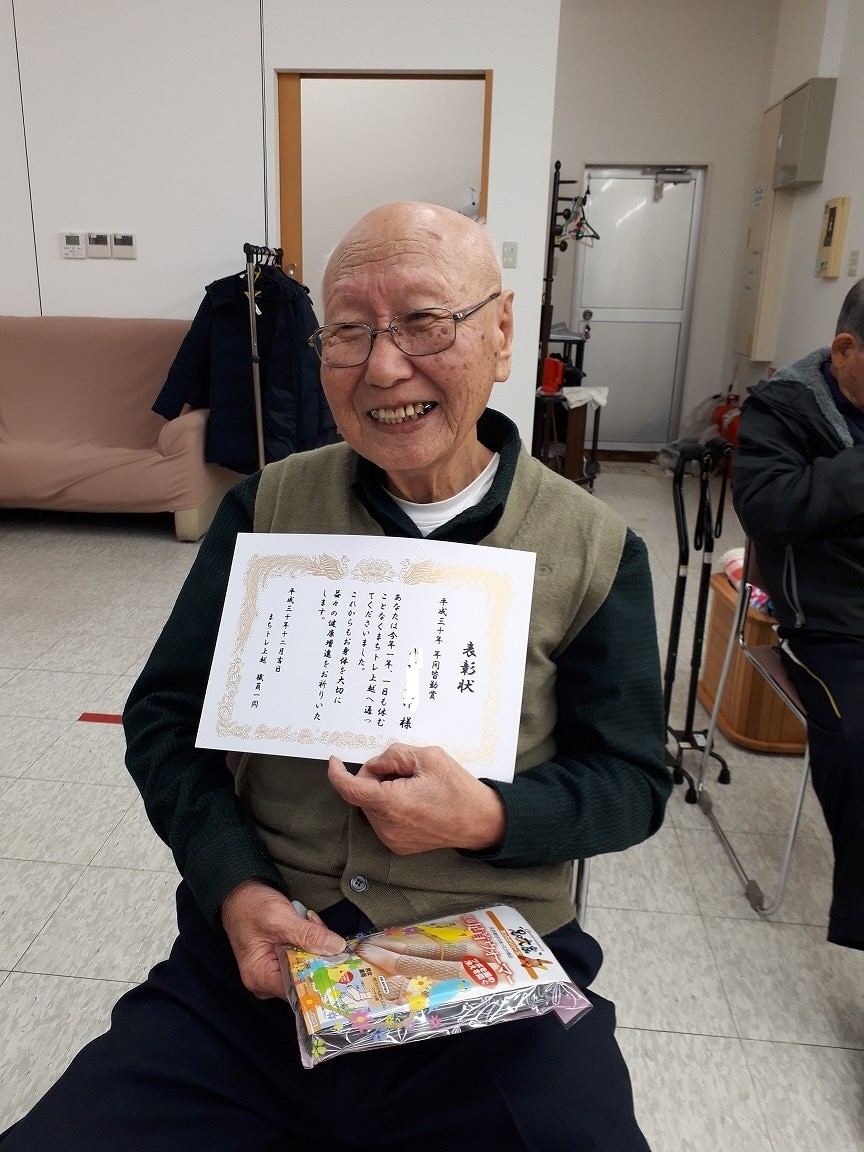 表彰状
平成三十年 年間皆勤賞
様
あなたは今年一年、一日も休む
ことなくまちトレ上越へ通っ
てくださいました。
これからもお身体を大切に
益々の健康増進をお祈りいた
します。
平成三十年十二月吉日
まちトレ上越 職員一同